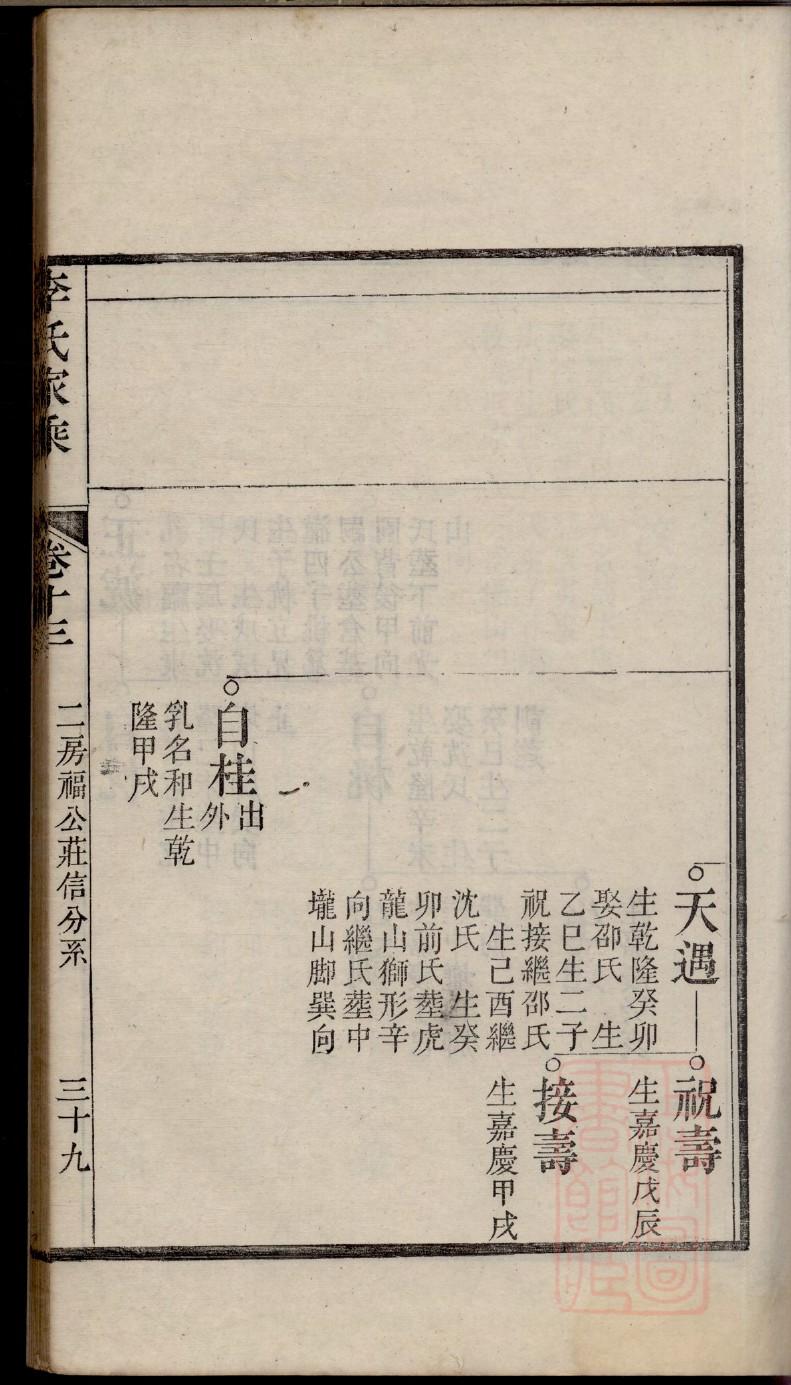 天遇
生乾隆癸卯
娶邵氏　生
乙巳生二子
祝接繼邵氏
生己酉繼
沈氏　生癸
卯前氏塟虎
龍山獅形辛
向繼氏塟中
壠山脚巽向
祝壽
生嘉慶戊辰
接壽
生嘉慶甲戌
自桂
出
外
乳名和生乾
隆甲戌
李氏家乘
卷十三
二房福公莊信分系
三十九